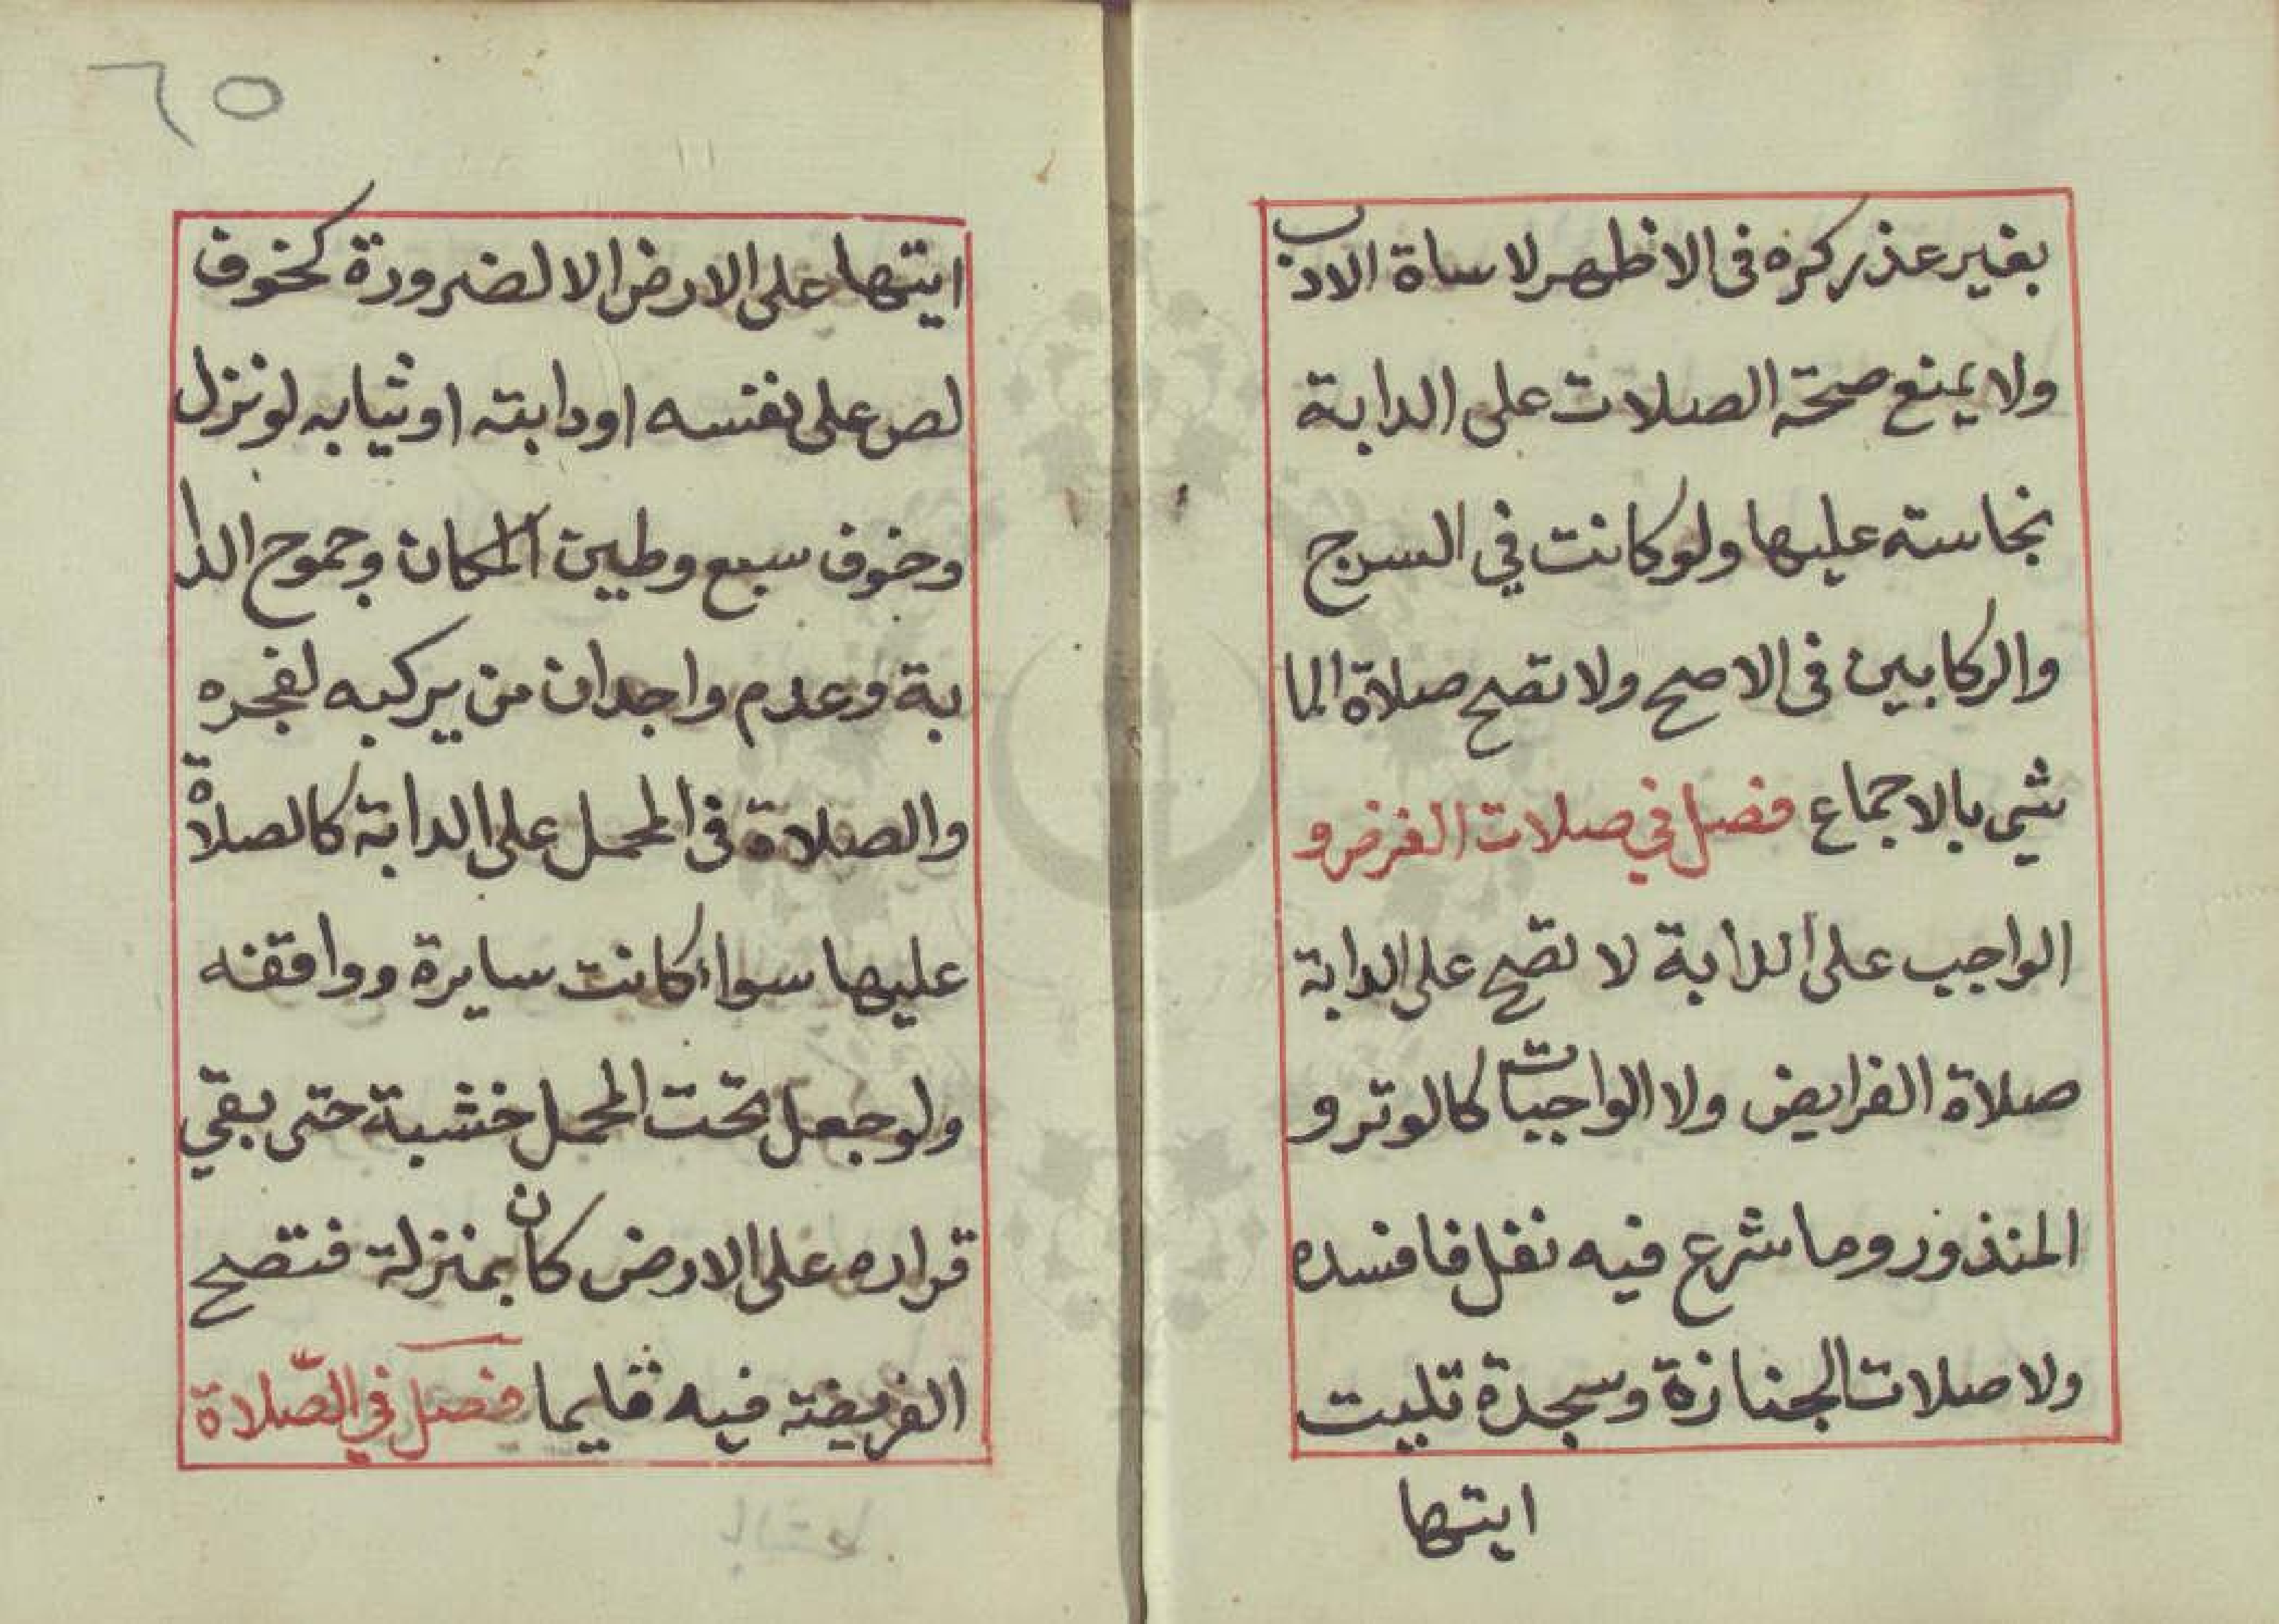 بغير عذر كره فى الاظهر لاساة الادب
ولا يمنع صحته الصلات على الدابة
نجاسته عليها ولو كانت في السرج
والركابين فى الاصح ولا تصح صلاة الما
شي بالاجماع فصل في صلات الفرض و
الواجب على الدابة لا تصح على الدابة
صلاة الفرايض ولا الواجبات كالوتر و
المنذور وما شرع فيه نفل فافسده
ولا صلات الجنازة وسجدة تليت
ايتها
٦٥
ايتها على الارض الا لضرورة كخوف
لص على نفسه او دابته او ثيابه لو نزل
وخوف سبع وطين المكان وجموح الدا
بة وعدم واجدان من يركبه لفجره
والصلاة فى المحمل على الدابة كالصلاة
عليها سواء كانت سايرة وواقفه
ولو جعل تحت المحمل خشبة حتى بقي
قراره على الارض كان بمنزلة فتصح
الفريضته فيه قايما فصل في الصّلاة